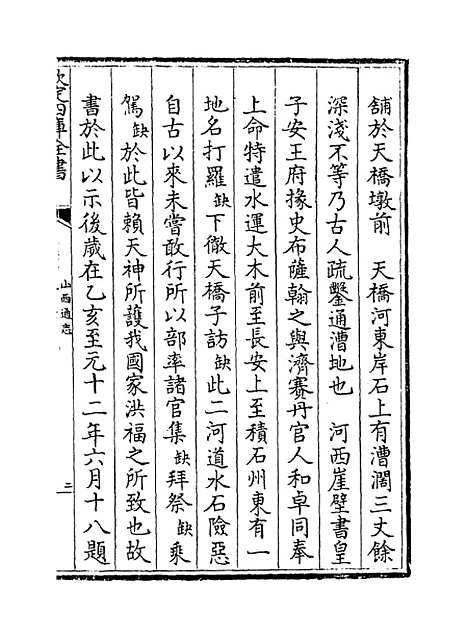 舖於天橋墩前　天橋河東岸石上有漕濶三丈餘
深淺不等乃古人疏鑿通漕地也　河西崖壁書皇
子安王府掾史布薩翰之與濟賽丹官人和卓同奉
上命特遣水運大木前至長安上至積石州東有一
地名打羅缺下徹天橋子訪缺此二河道水石險惡
自古以來未嘗敢行所以部率諸官集缺拜祭缺乘
駕缺於此皆賴天神所護我國家洪福之所致也故
書於此以示後歲在乙亥至元十二年六月十八題
欽定四庫全書
山西通志
三